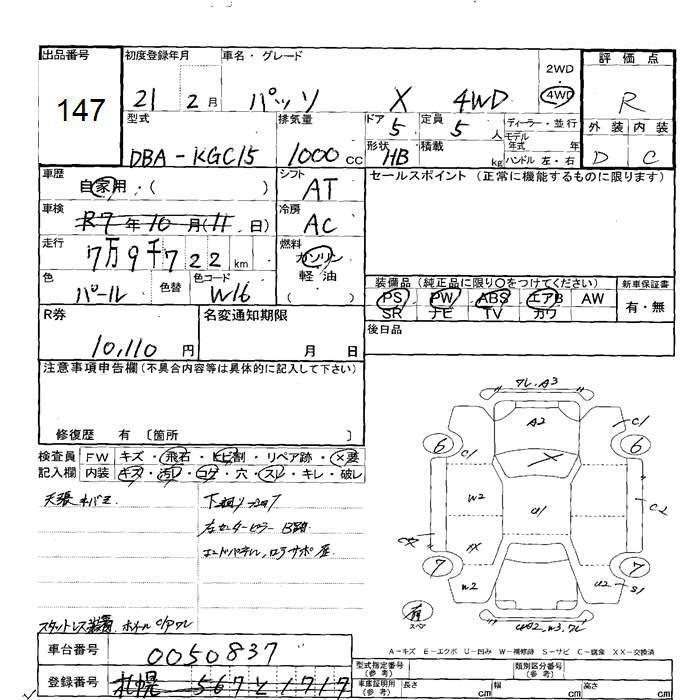 出品番号
147
初度登録年月
21 2月
車名・グレード
パッソ X 4WD
2WD
・
4WD
評価点
R
型式
DBA-KGC15
排気量
1000 CC
ドア
5
定員
5 人
ディーラー・並行
モデル年式 年
外装 内装
D C
形状
HB
積載 kg
ハンドル 左・右
車歴
自家用・( )
シフト
AT
セールスポイント (正常に機能するものに限ります)
車検
R7年10月(11日)
冷房
AC
走行
7万9千722 km
燃料
ガソリン
軽油
( )
色
パール
色替
色コード
W16
装備品 (純正品に限り○をつけてください)
新車保証書
PS PW ABS エアB AW
SR ナビ TV カワ
有・無
R券
10,110 円
名変通知期限
月 日
後日品
注意事項申告欄 (不具合内容等は具体的に記入して下さい)
修復歴 有 〔箇所 〕
検査員記入欄
FW キズ・飛石・ヒビ割・リペア跡・×要
内装 キズ・汚レ・コゲ・穴・スレ・キレ・破レ
天張キバミ
ワレ.A3
A2
C1
6
C1
6
W2
U1
C2
7
W2
U2
S1
7
有
スペア
スタットレス装着 ホイルC/Pワレ
A-キズ E-エクボ U-凹み W-補修跡 S-サビ C-腐食 XX-交換済
車台番号
0050837
登録番号
札幌 567 と 1717
型式指定番号(参考)
類別区分番号(参考)
車庫証明用(参考)
長さ cm
幅 cm
高さ cm